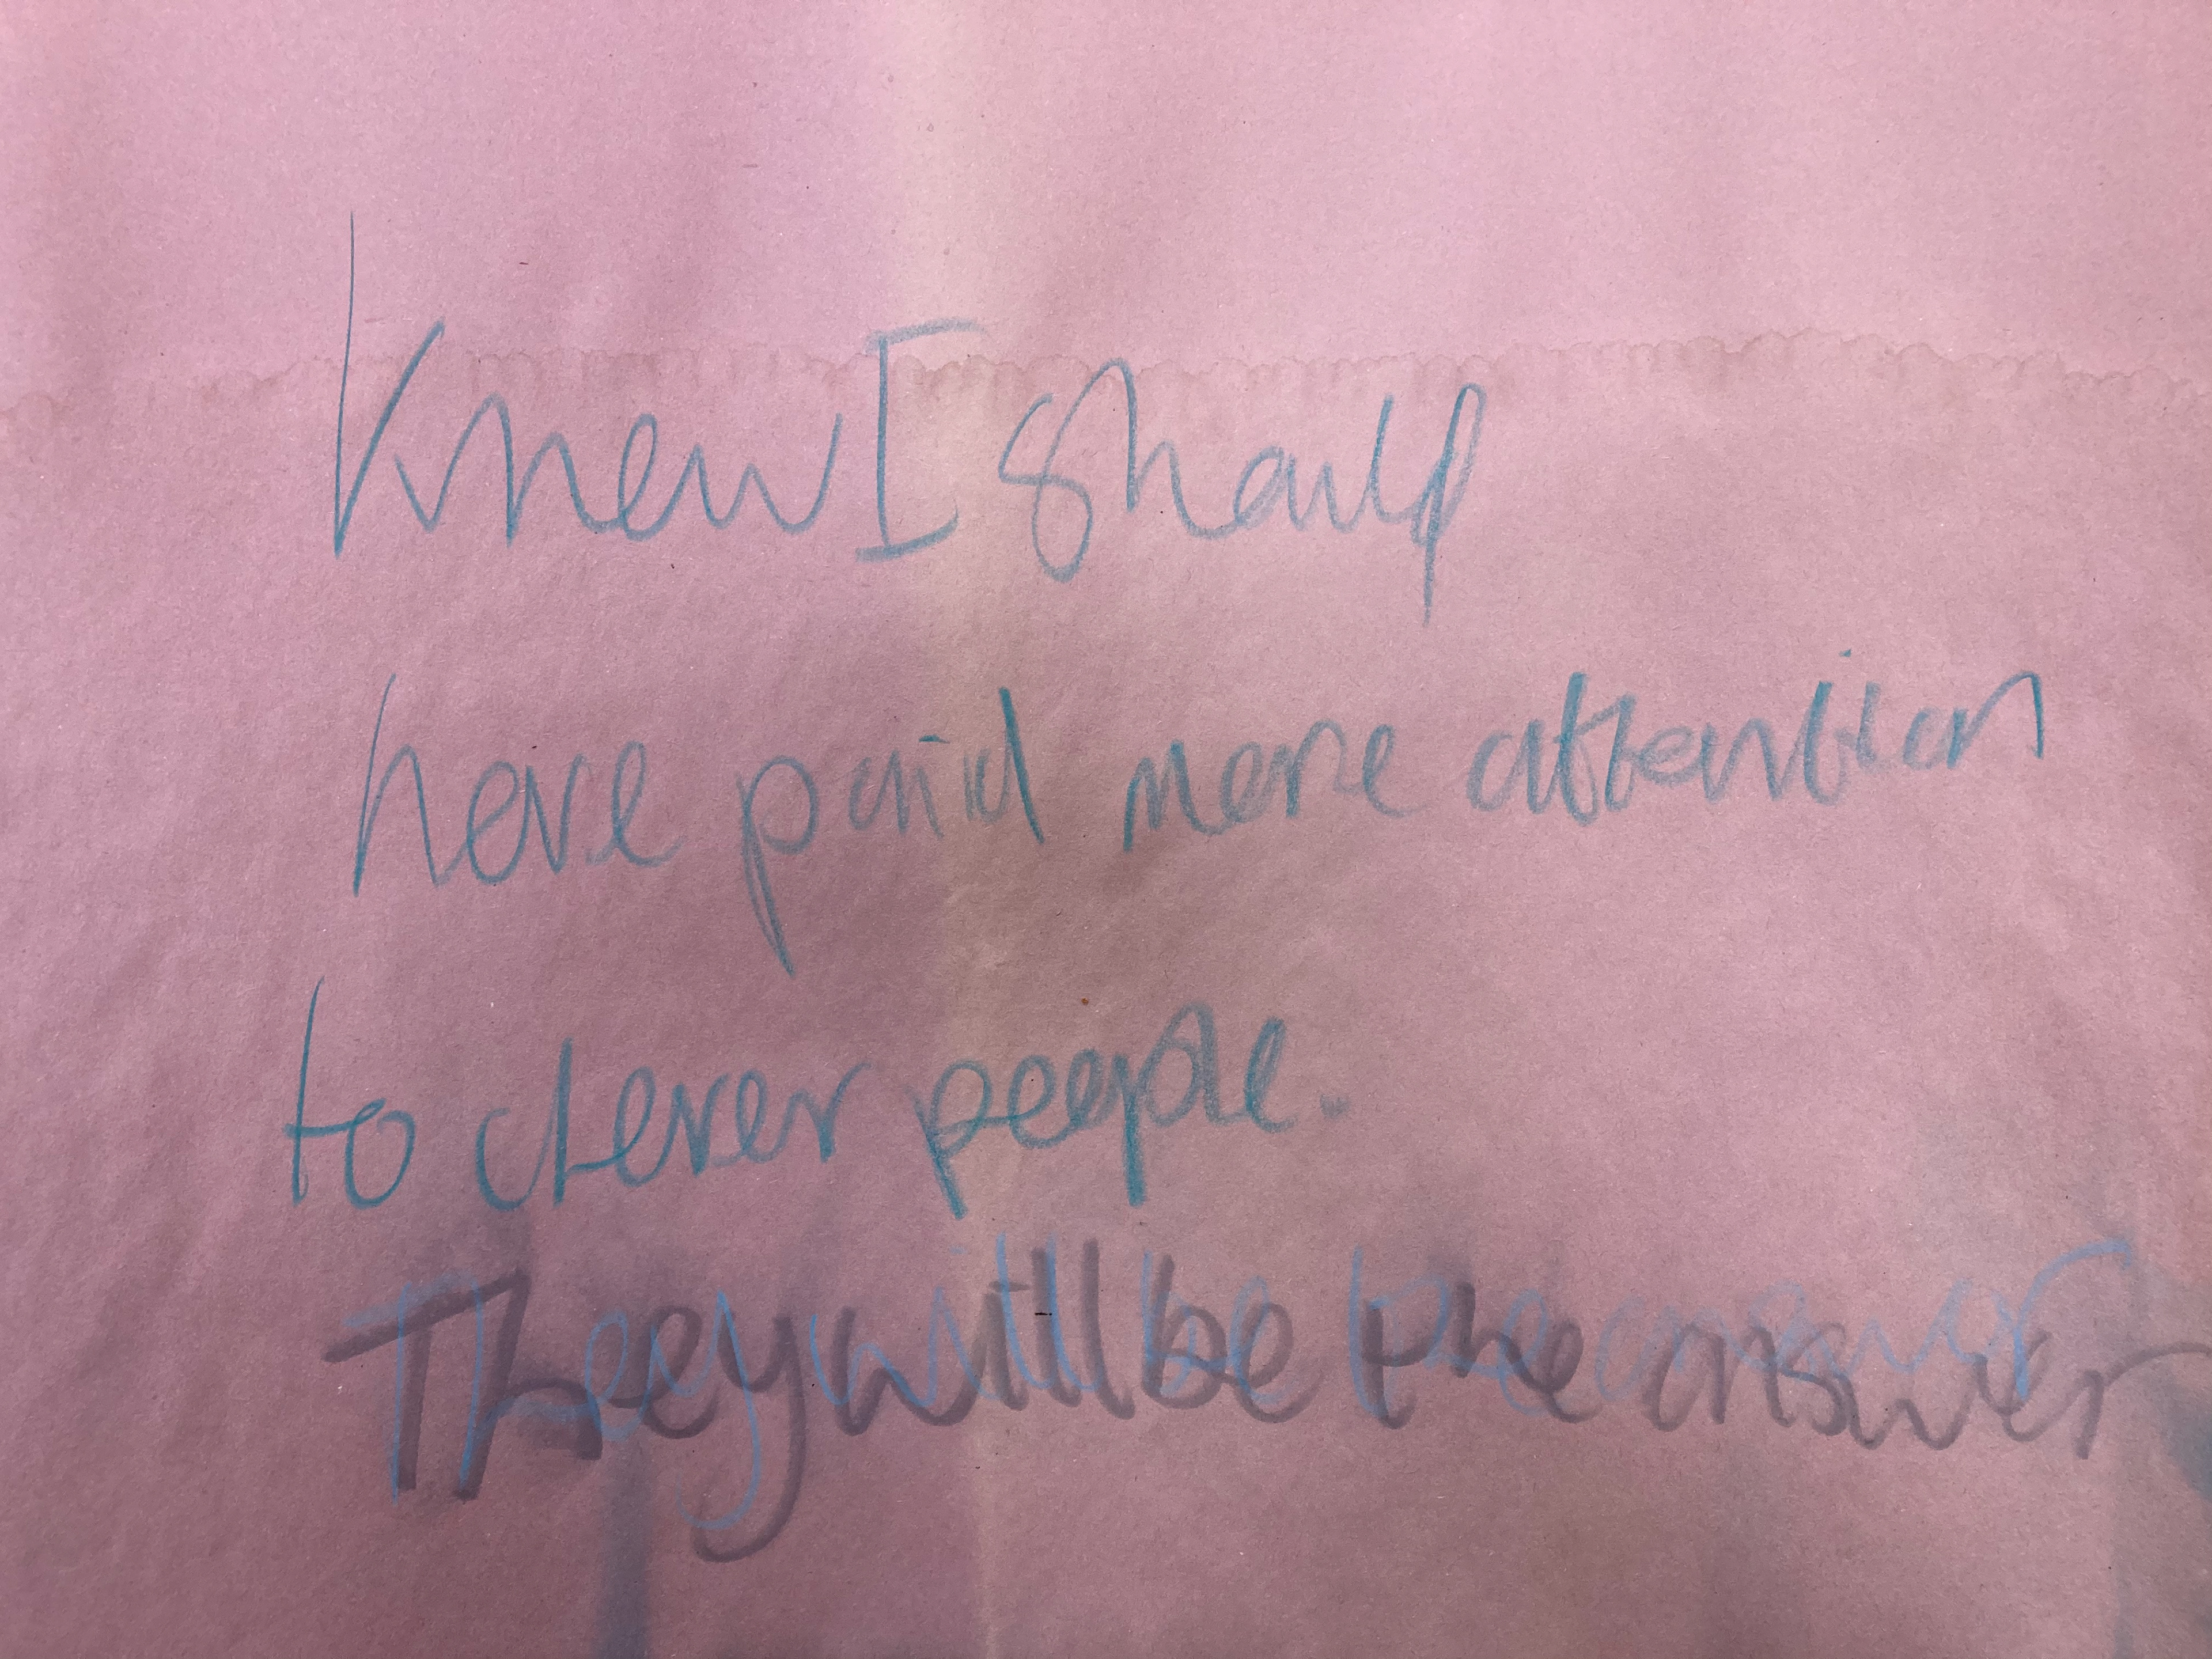 Knew I should
have paid more attention
to clever people.
They will be the answer